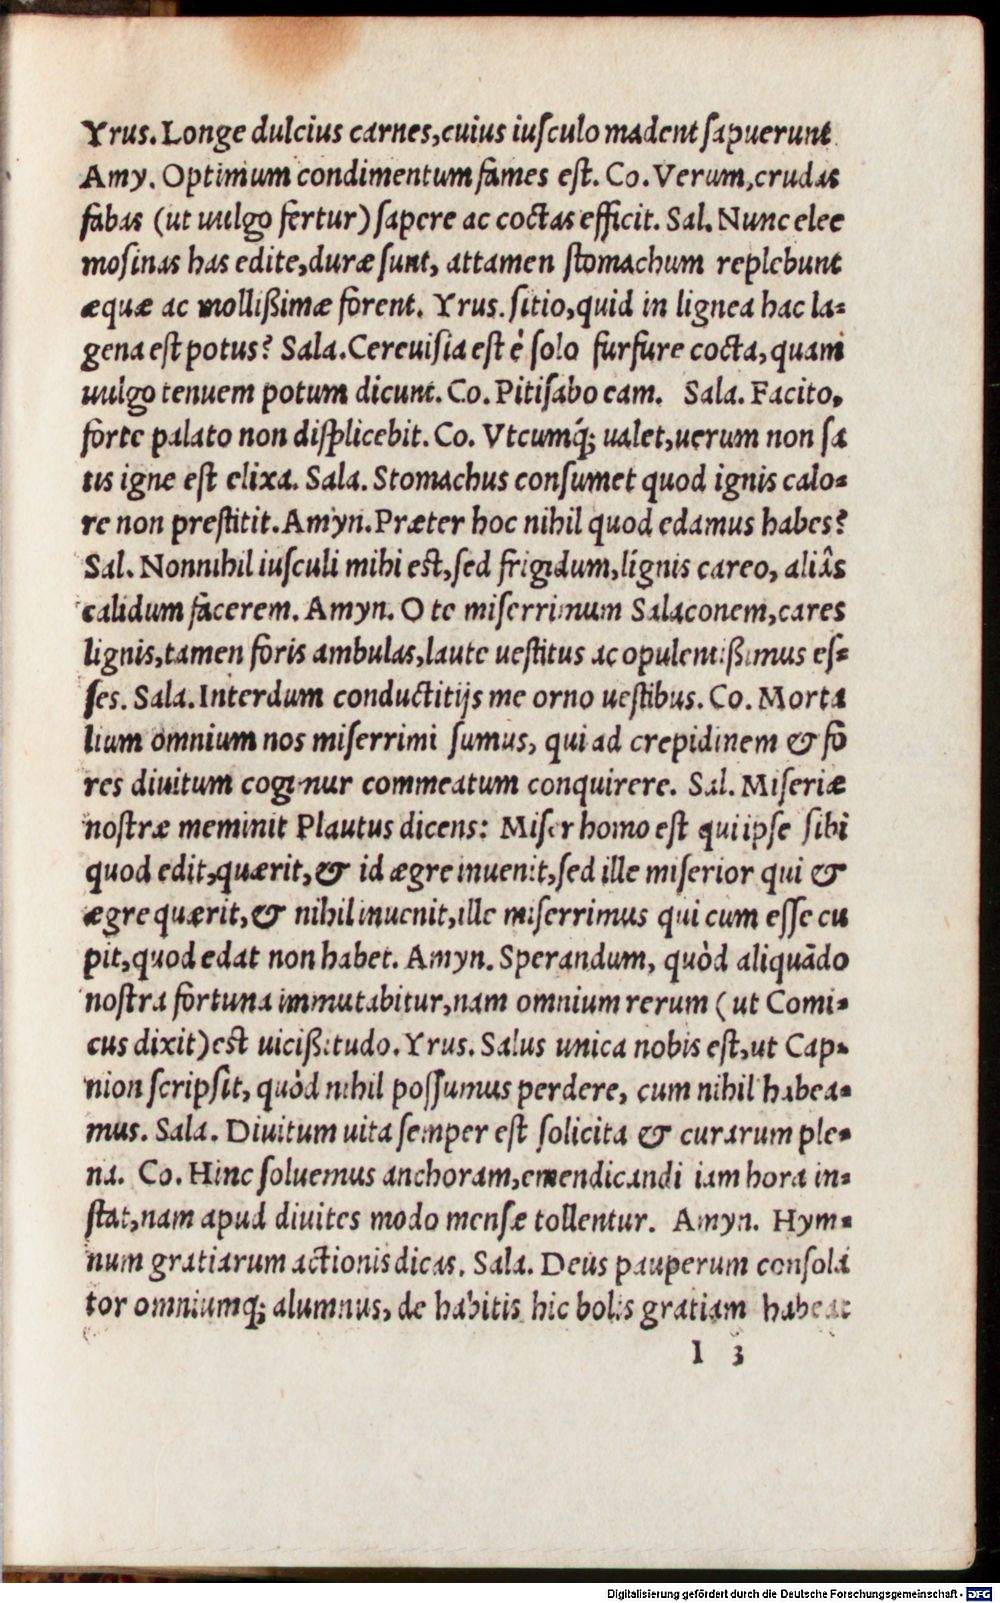 Yrus. Longe dulcius carnes, cuius iuſculo madent ſapuerunt
Amy. Optimum condimentum fames eſt. Co. Verum, crudas
fabas (ut uulgo fertur) ſapere ac coctas efficit. Sal. Nunc elee
moſinas has edite, duræ ſunt, attamen ſtomachum replebunt
æquæ ac molliſsimæ forent. Yrus. ſitio, quid in lignea hac la-
gena eſt potus? Sala. Cereuiſia eſt è ſolo furfure cocta, quam
uulgo tenuem potum dicunt. Co. Pitiſabo eam. Sala. Facito,
forte palato non diſplicebit. Co. Vtcumq́; ualet, uerum non ſa
tis igne eſt elixa. Sala. Stomachus conſumet quod ignis calo-
re non preſtitit. Amyn. Præter hoc nihil quod edamus habes?
Sal. Nonnihil iuſculi mihi eſt, ſed frigidum, lígnis careo, aliâs
calidum facerem. Amyn. O te miſerrimum Salaconem, cares
lignis, tamen foris ambulas, laute ueſtitus ac opulentiſsimus eſ-
ſes. Sala. Interdum conductitijs me orno ueſtibus. Co. Morta
lium omnium nos miſerrimi ſumus, qui ad crepidinem & fo
res diuitum cogimur commeatum conquirere. Sal. Miſeriæ
noſtræ meminit Plautus dicens: Miſer homo eſt qui ipſe ſibi
quod edit, quærit, & id ægre inuenit, ſed ille miſerior qui &
ægre quærit, & nihil inuenit, ille miſerrimus qui cum eſſe cu
pit, quod edat non habet. Amyn. Sperandum, quòd aliquādo
noſtra fortuna immutabitur, nam omnium rerum (ut Comi-
cus dixit) eſt uiciſsitudo. Yrus. Salus unica nobis eſt, ut Cap-
nion ſcripſit, quòd nihil poſſumus perdere, cum nihil habea-
mus. Sala. Diuitum uita ſemper eſt ſolicita & curarum ple-
na. Co. Hinc ſoluemus anchoram, emendicandi iam hora in-
ſtat, nam apud diuites modo menſæ tollentur. Amyn. Hym-
num gratiarum actionis dicas. Sala. Deus pauperum conſola
tor omniumq; alumnus, de habitis hic bolis gratiam habeat
l 3
Digitalisierung gefördert durch die Deutsche Forschungsgemeinschaft - DFG